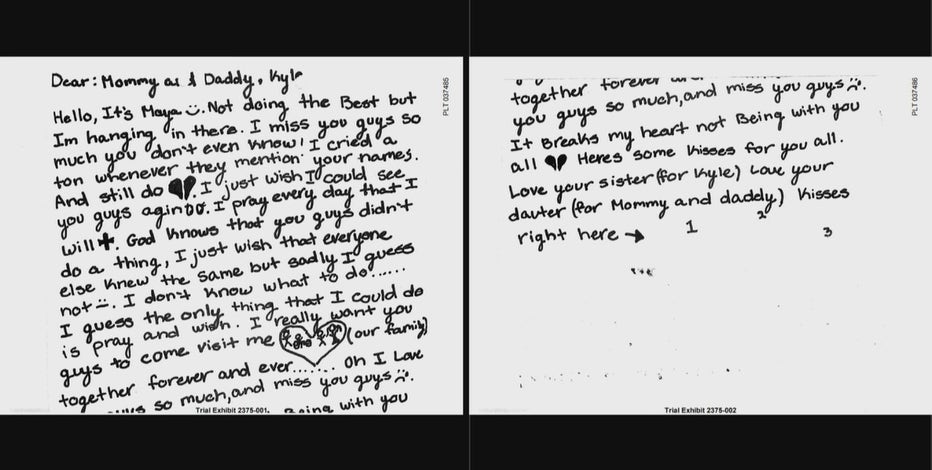 Dear: Mommy as & Daddy, Kyle
Hello, It's Maya :). Not doing the Best but
Im hanging in there. I miss you guys so
much you don't even know! I cried a
ton whenever they mention your names.
And still do 💔. I just wish I could see
you guys agin. I pray every day that I
will ✝. God knows that you guys didn't
do a thing, I just wish that everyone
else knew the same but sadly I guess
not :(. I don't know what to do......
I guess the only thing that I could do
is pray and wish. I really want you
guys to come visit me (our family)
together forever and ever....... Oh I Love
guys so much, and miss you guys :(.
Being with you
PLT 037485
Trial Exhibit 2375-001
together forever
you guys so much, and miss you guys :(.
It Breaks my heart not Being with you
all 💔 Heres some kisses for you all.
Love your sister (for Kyle) Love your
dauter (for Mommy and daddy) Kisses
right here → 1 2 3
PLT 037486
Trial Exhibit 2375-002